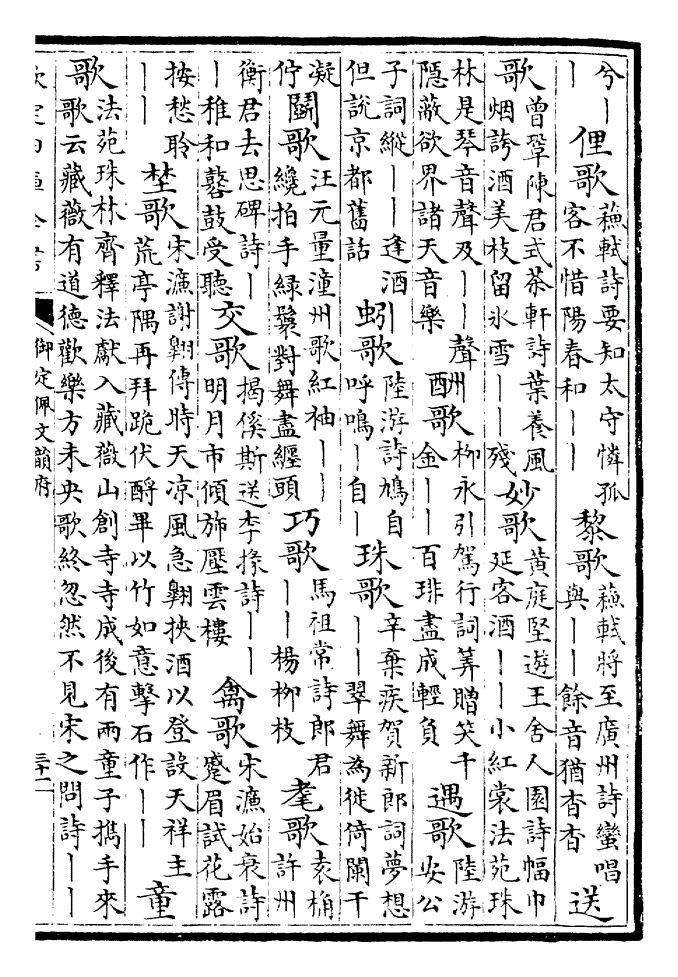 兮丨丨 俚歌 蘓軾詩要知太守憐孤客不惜陽春和丨丨 黎歌 蘓軾將至廣州詩蠻唱與丨丨餘音猶杳杳 送
歌 曾鞏陳君式茶軒詩葉養風烟誇酒美枝留氷雪丨丨殘 妙歌 黄庭堅遊王舍人園詩幅巾延客酒丨丨小紅裳法苑珠
林是琴音聲及丨丨聲隱蔽欲界諸天音樂 酬歌 柳永引駕行詞筭贈笑千金丨丨百琲盡成輕負 遇歌 陸游安公
子詞縱丨丨逢酒但說京都舊話 蚓歌 陸游詩鳩自呼鳴丨自丨 珠歌 辛棄疾賀新郎詞夢想丨丨翠舞為徙倚闌干
凝佇 鬭歌 汪元量潼州歌紅袖丨丨纔拍手緑鬟對舞盡纏頭 巧歌 馬祖常詩郎君丨丨楊柳枝 耄歌 袁桷許州
衡君去思碑詩丨丨稚和鼛鼓受聽 交歌 揭傒斯送李掾詩丨丨明月市傾斾壓雲樓 禽歌 宋濂始衰詩蹙眉試花露
按愁聆丨丨 埜歌 宋濂謝翺傳時天凉風急翺挾酒以登設天祥主荒亭隅再拜跪伏酹畢以竹如意擊石作丨丨 童
歌 法苑珠林齊釋法獻入藏薇山創寺寺成後有兩童子攜手來歌云藏薇有道德歡樂方未央歌終忽然不見宋之問詩丨丨
御定佩文韻府